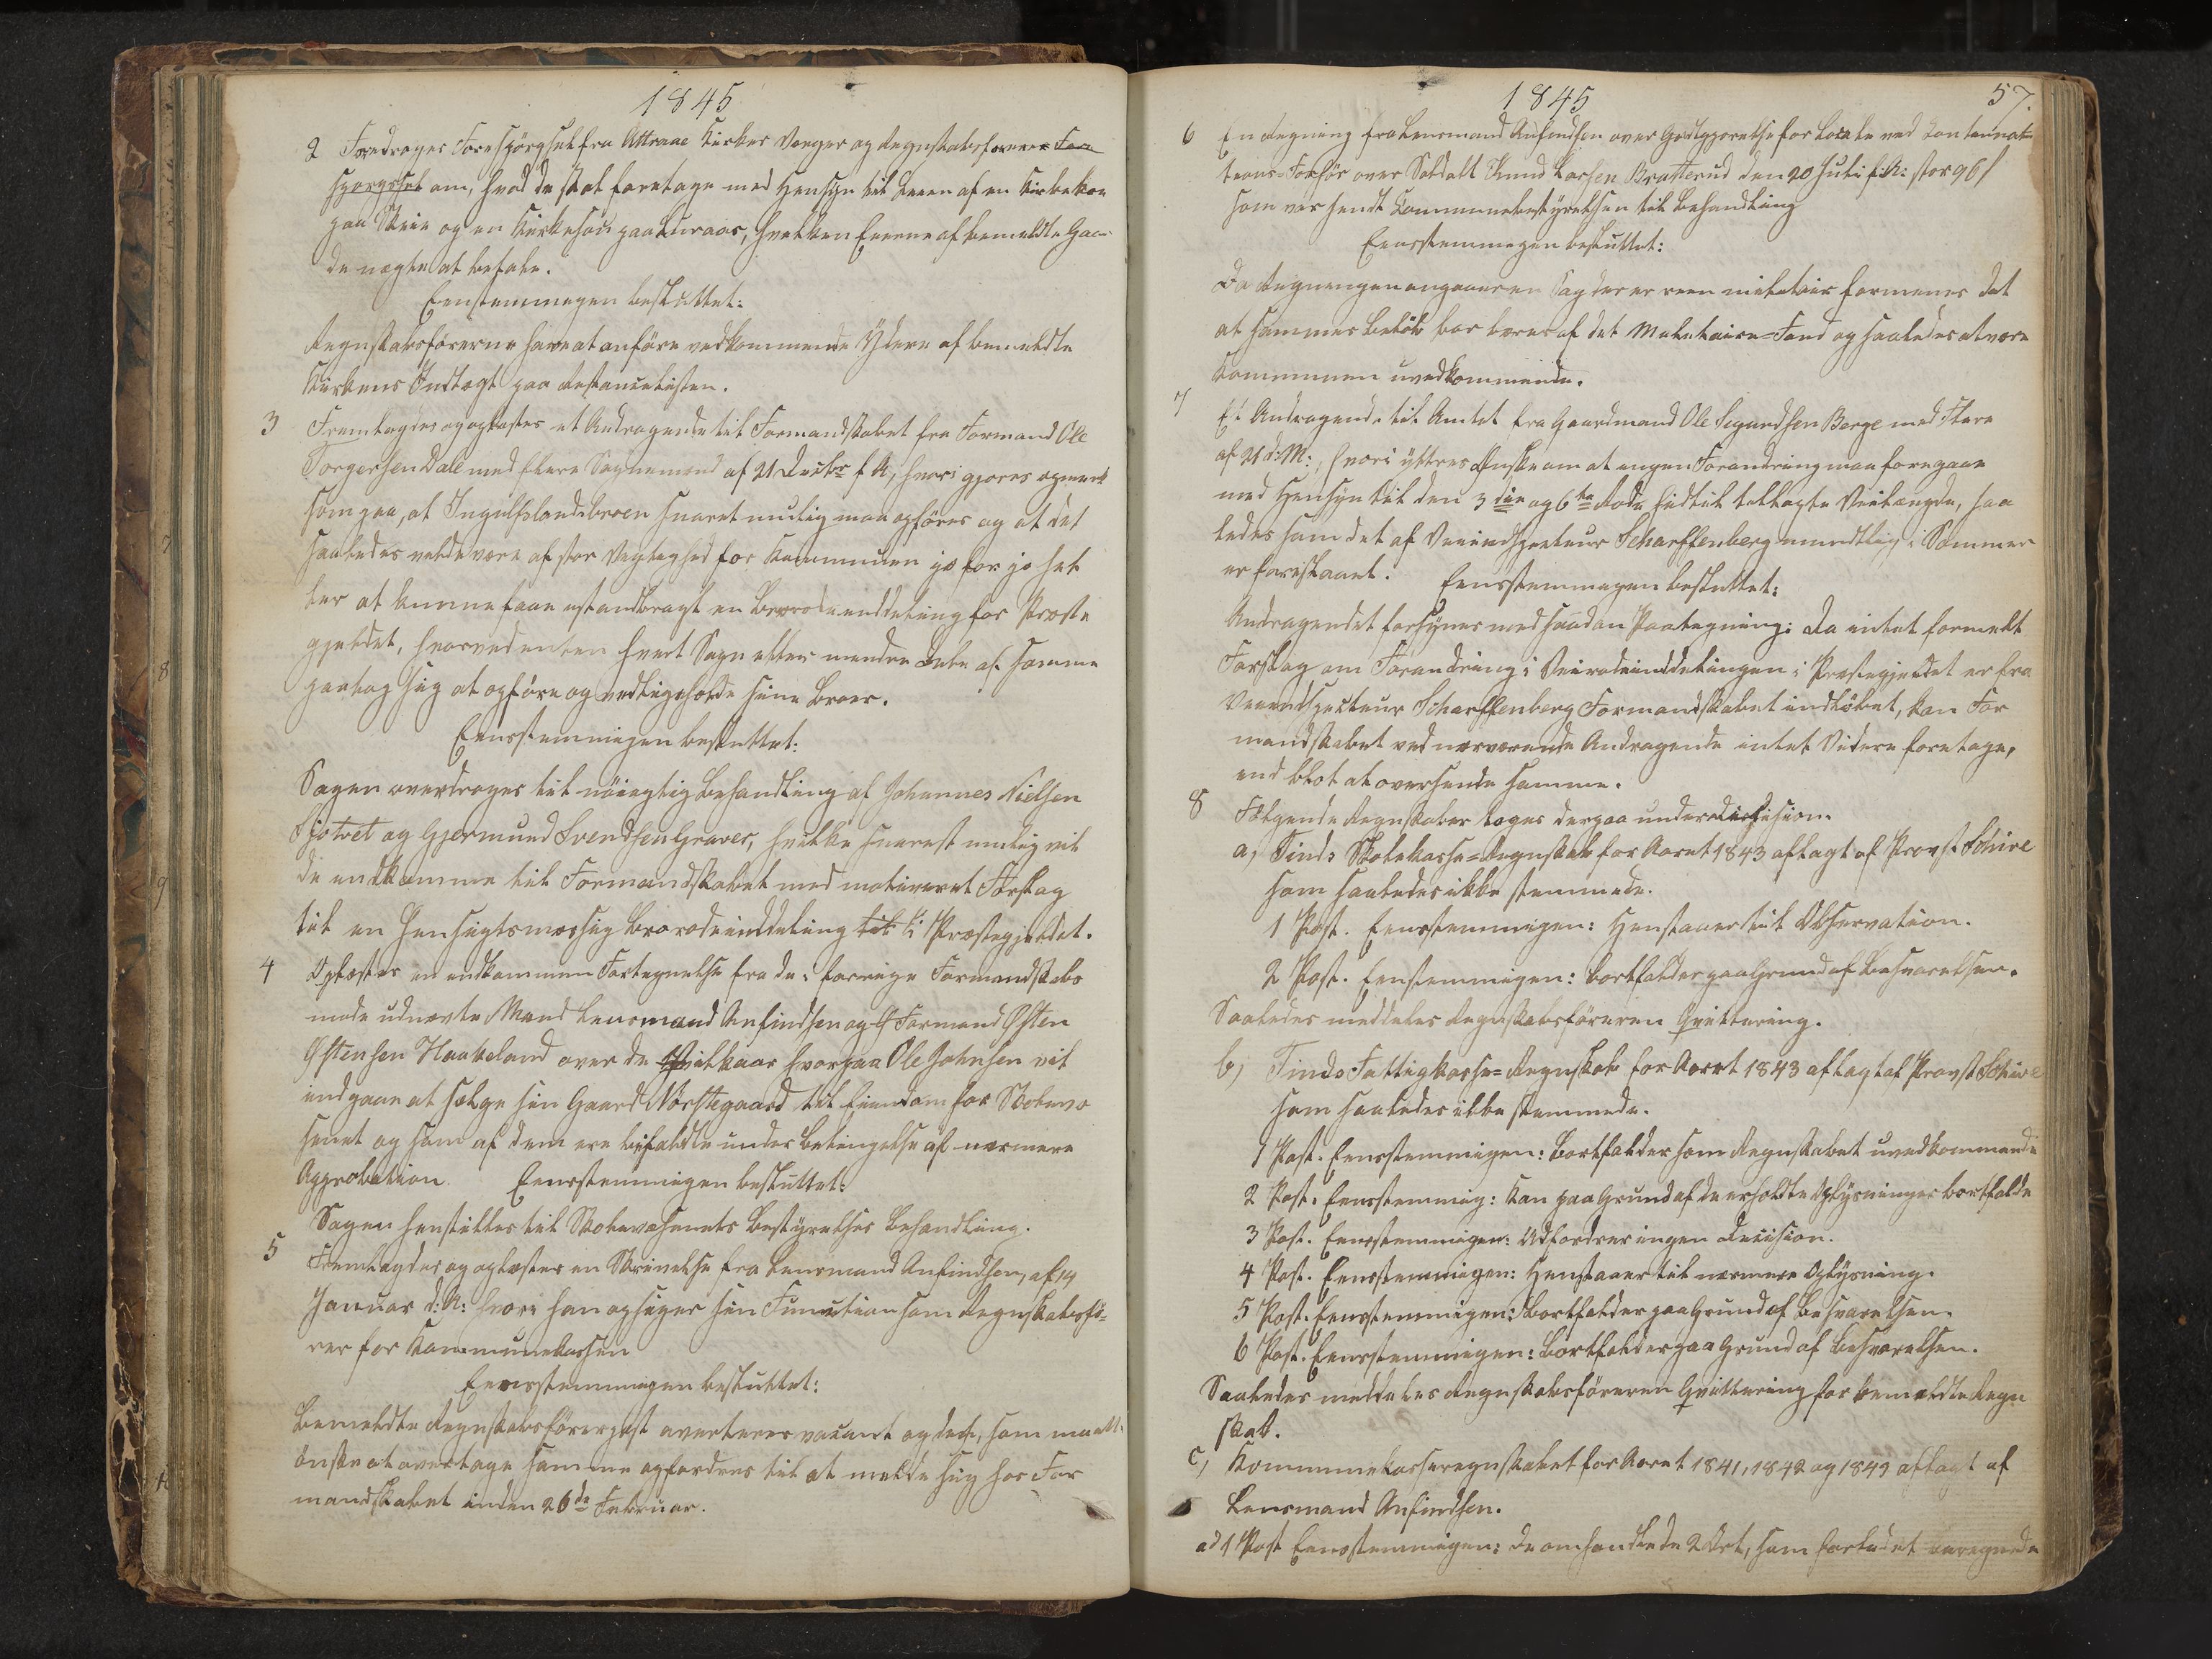 1845
2 Foredrages Forespörgsel fra Attraae Kirkes Værger og Regnskabsförere Fore
spörgsel om, hvad de skal foretage med Hensyn til Leien af en Kirkekoe
paa Skeie og en Kirkekoe paa Luraas, hvilken Eierne af bemeldte Gaar
de nægte at betale.
Eenstemmigen besluttet:
Regnskabsförerne have at anföre vedkommende Ydere af bemeldte
Kirkens Indtægt paa Restancelisten.
3 Fremlagdes og oplæstes et Andragende til Formandskabet fra Formand Ole
Torgersen Dale med flere Sognemænd af 21 Decbr f. A., hvori gjöres opmærk
som paa, at Ingulfslandsbroen snarest mulig maa opföres og at det
saaledes vilde være af stor Vigtighed for Kommunen jo for jo hel
ler at kunne faae istandbragt en Brorodeinddeling for Præste
gjeldet, hvorved enten hvert Sogn eller mendre Dele af samme
paatog sig at opföre og vedligeholde sine Broer.
Eensstemmigen besluttet:
Sagen overdroges til nöiagtig Behandling af Johannes Nielsen
Sjotvet og Gjermund Svendsen Graver, hvilke snarest mulig vil
de indkomme til Formandskabet med motiveret Forslag
til en Hensigtsmæssig Brorodeinddeling til i Præstegjeldet.
4 Oplæstes en indkommen Fortegnelse fra de i forrige Formandskabs
möde udnævnte Mænd Lensmand Anfindsen og Formand Østen
Østensen Haakeland over de Vilkaar hvorpaa Ole Johnsen vil
indgaae at sælge sin Gaard Nörstegaard til Eiendom for Skolevæ
senet og som af dem ere bifaldte under Betingelse af nærmere
Approbation. Eensstemmigen besluttet:
Sagen henstilles til Skolevæsenets Bestyrelses Behandling.
5 Fremlagdes og oplæstes en Skrivelse fra Lensmand Anfindsen, af 14
Januar d: A: hvori han opsiger sin Function som Regnskabsfö-
rer for Kommunekassen
Eensstemmigen besluttet:
Bemeldte Regnskabsförerpost averteres vacant og de, som maatte
önske at overtage samme opfordres til at melde sig hos For
mandskabet inden 26de Februar.
1845
57.
6 En Regning fra Lensmand Anfindsen over Godtgjörelse for Locale ved
tions-Forhör over Soldatt Knud Larsen Bratterud den 20 Juli f: A: stor 96 s
som var sendt Communebestyrelsen til Behandling
Eensstemmigen besluttet:
Da Regningen angaaer en Sag der er reen militair formenes det
at sammes Belöb bör bæres af det Militaire-Fond og saaledes at være
Kommunen uvedkommende.
7 Et Andragende til Amtet fra Gaardmand Ole Sigurdsen Berge med Flere
af 21 d: M:, hvori yttres Önske om at ingen Forandring maa foregaae
med Hensyn til den 3die og 6te Rode hidtil tillagte Veilængde, saa
ledes som det af Veiinspecteur Scharffenberg mundtlig i Sommer
er foreslaaet. Eensstemmigen besluttet:
Andragendet forsynes med saadan Paategning: Da intet formelt
Forslag om Forandring i Veirodeinddelingen i Præstegjeldet er fra
Veiinspecteur Scharffenberg Formandskabet indlöbet, kan For
mandskabet ved nærværende Andragende intet Videre foretage,
end blot at oversende samme.
8 Fölgende Regnskaber toges derpaa under Decision.
a, Tinds Skolekasse-Regnskab for Aaret 1843 aflagt af Provst Schive
som saaledes ikke stemmede.
1 Post. Eensstemmigen: Henstaaer til Observation.
2 Post. Eenstemmigen: Bortfalder paa Grund af Besvarelsen.
Saaledes meddeles Regnskabsföreren Qvittering.
b, Tinds Fattigkasse-Regnskab for Aaret 1843 aflagt af Provst Schive
som saaledes ikke stemmede.
1 Post. Eensstemmigen: Bortfalder som Regnskabet uvedkommende
2 Post. Eensstemmig: Kan paa Grund af de erholdte Oplysninger bortfalde
3 Post. Eensstemmigen: Udfordrer ingen Decision.
4 Post. Eensstemmigen: Henstaaer til nærmere Oplysning.
5 Post. Eensstemmigen: Bortfalder paa Grund af Besvarelsen.
6 Post. Eensstemmigen: Bortfalder paa Grund af Besvarelsen.
Saaledes meddeles Regnskabsföreren Qvittering for bemældte Regn
skab.
c, Kommunekasseregnskabet for Aaret 1841, 1842 og 1843 aflagt af
Lensmand Anfindsen.
ad 1 Post Eensstemmigen: De omhandlede 2 Ort, som